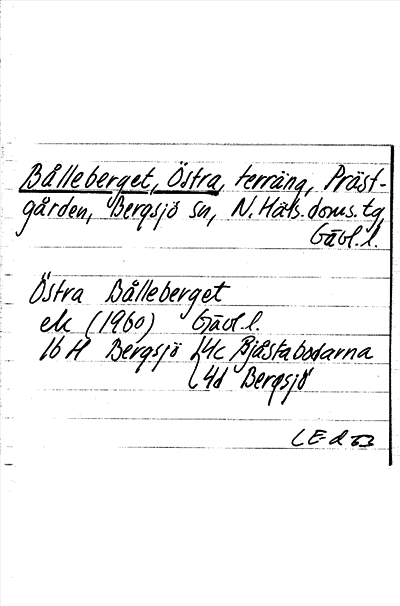 Bålleberget, Östra, terräng, Präst-
gården, Bergsjö sn, N. Häls. doms. tg
Gävl. l.
Östra Bålleberget
ek (1960) Gävl. l.
16H Bergsjö 4c Bjåstabodarna
4d Bergsjö